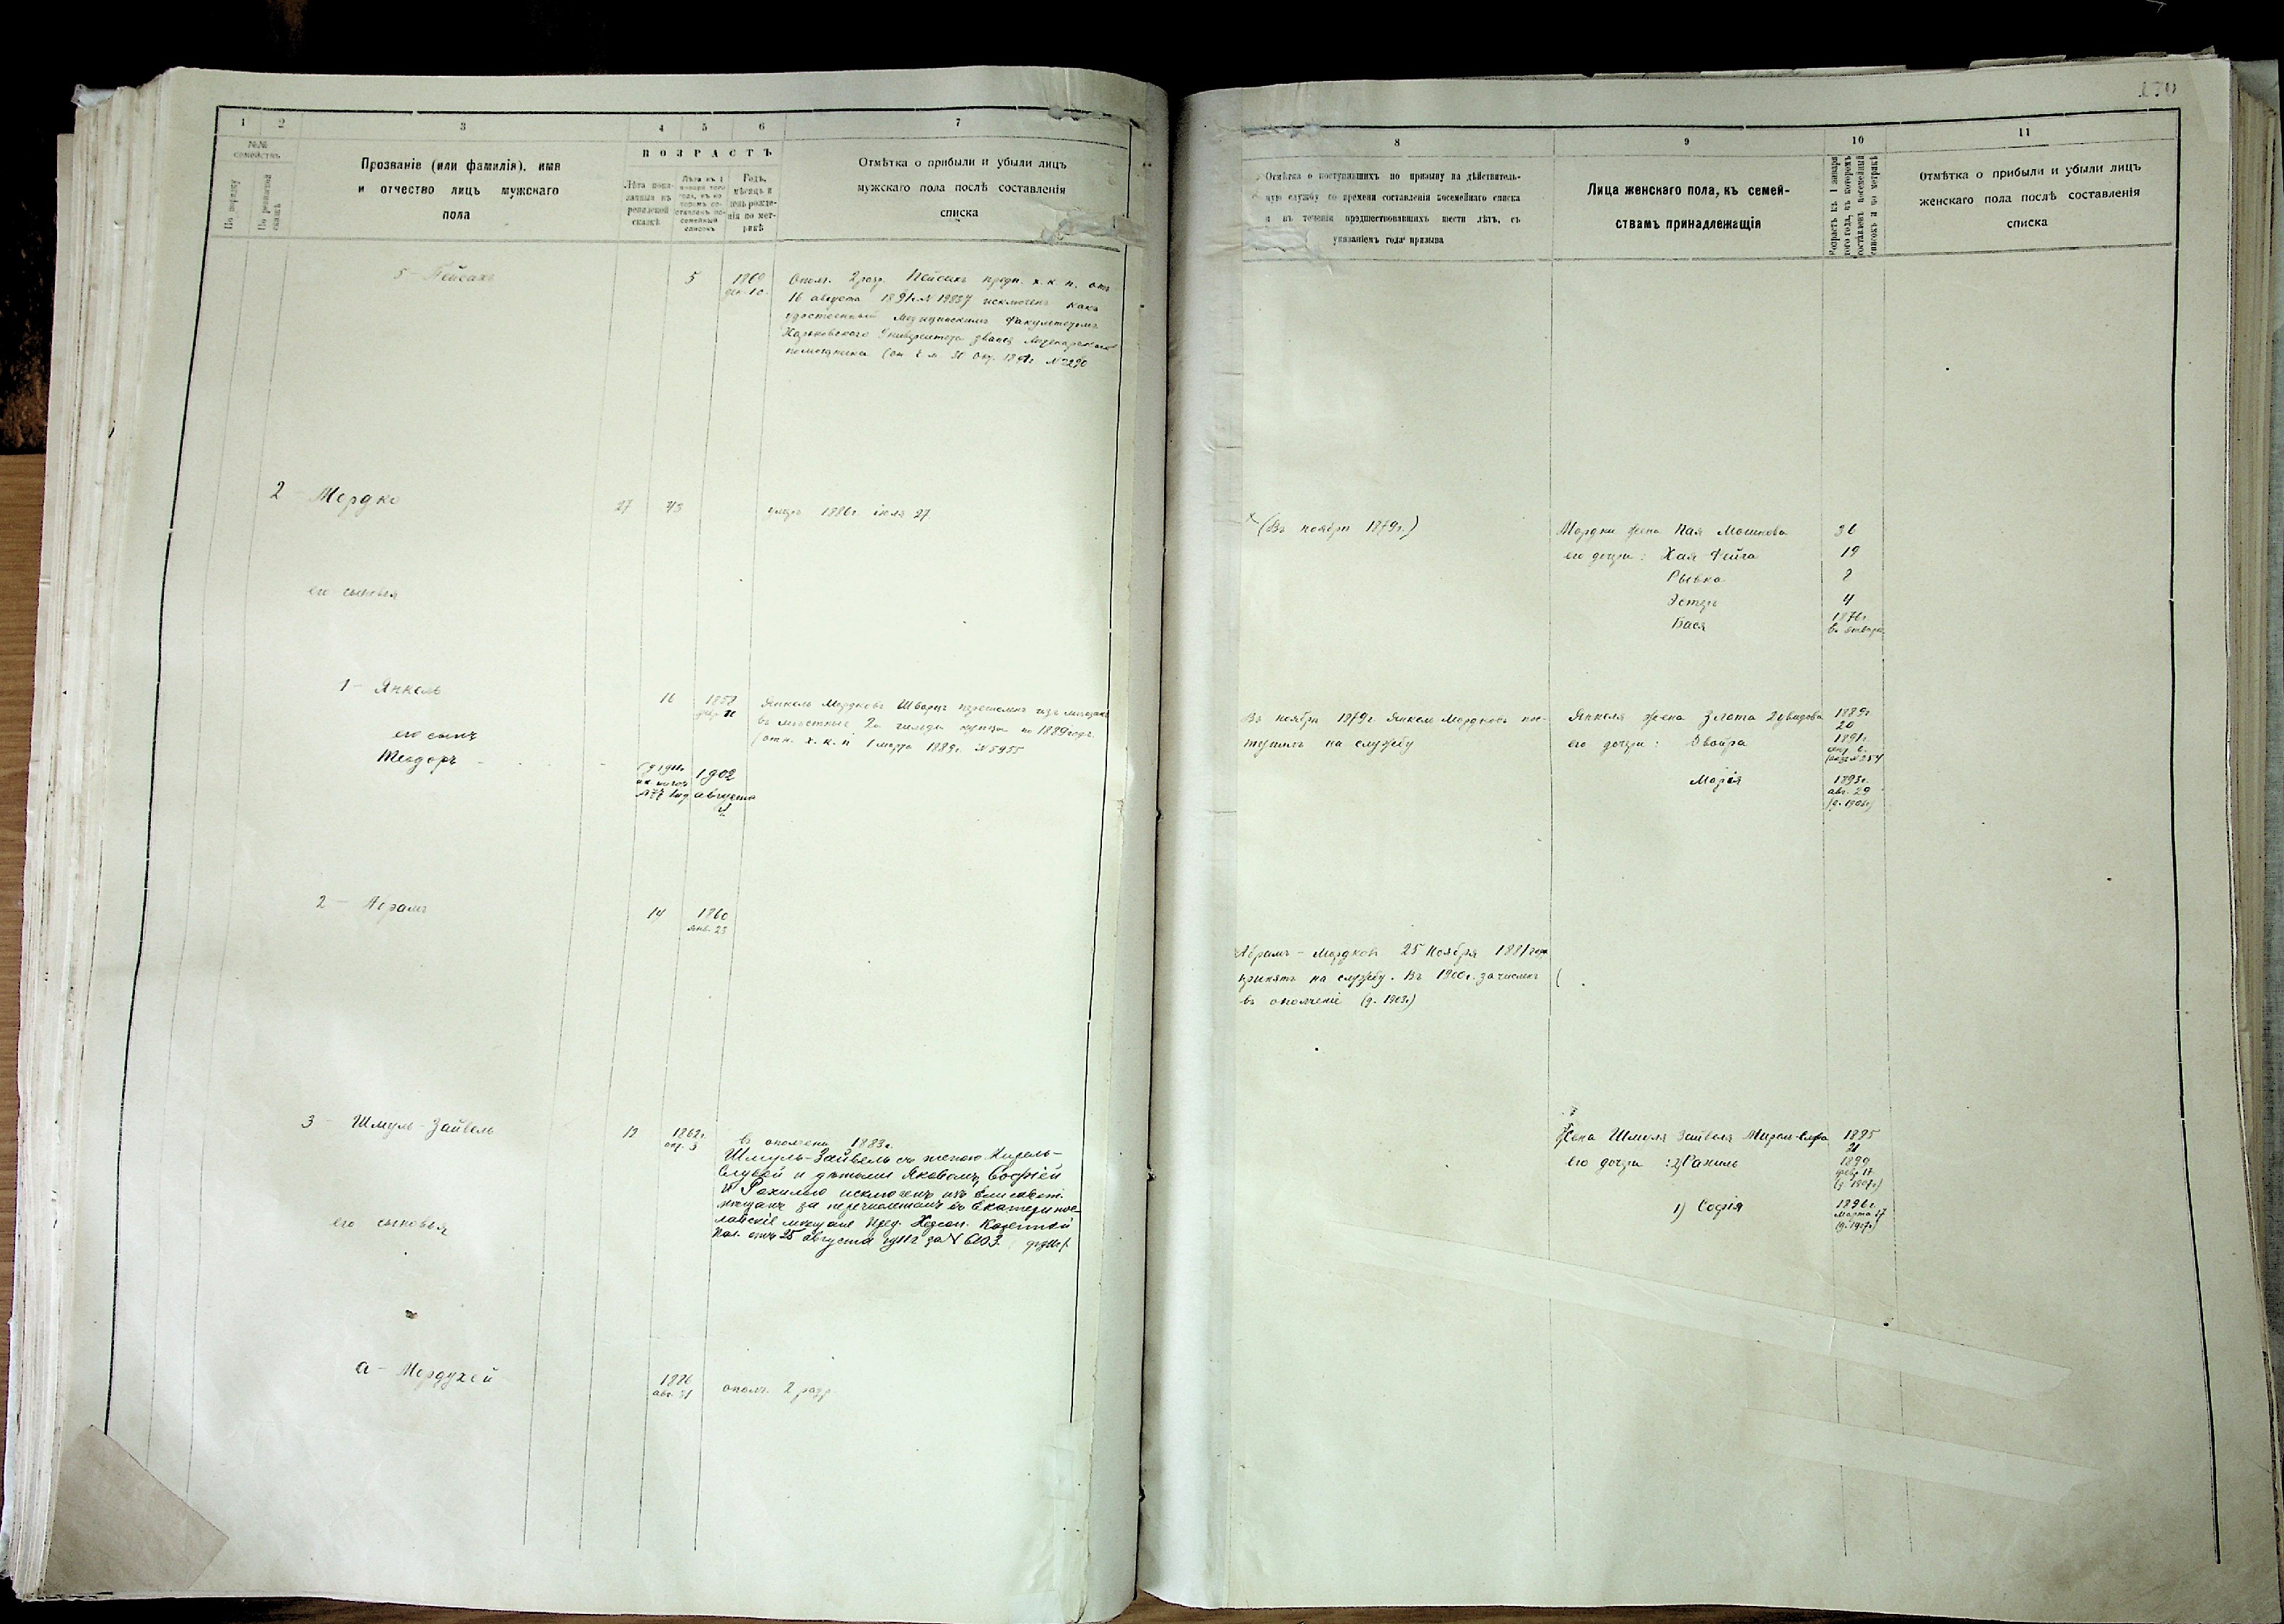 1 2 3 4 5 6 7
№№ семействъ
По порядку
По ревизской сказкѣ
Прозваніе (или фамилія), имя
и отчество лицъ мужскаго
пола
ВОЗРАСТЪ
Лѣта пока-
занныя въ
ревизской
сказкѣ
Лѣта къ 1
января того
года, въ ко-
торомъ со-
ставленъ по-
семейный
списокъ
Годъ,
мѣсяцъ и
день рожде-
нія по мет-
рикѣ
Отмѣтка о прибыли и убыли лицъ
мужскаго пола послѣ составленія
списка
5 – Пейсахъ 5
Ополч. 2 разр. Пейсахъ предп. х. к. п. отъ
16 августа 1891 г. № 19837 исключенъ какъ
удостоенный Медицинскимъ Факультетомъ
Харьковскаго Университета званія Аптекарскаго
помощника
2 Мордко 27 43 умеръ 1886 г. іюля 27
его сыновья
1 – Янкель 16
Янкель Мордковъ Шварцъ перечисленъ изъ мѣщанъ
въ мѣстные 2й гильдіи купцы по 1889 годъ
(отн. х. к. п 1 марта 1889 г. № 5955
его сынъ
Теодоръ 1902
августа
2 – Абрамъ 14 1860
янв. 23
3 – Шмуль-Зайвель 13 1862 г.
окт. 3
въ ополчени 1883 г.
Шмуль-Зайвель съ женою Мирель-
и дѣтьми Яковомъ, Софіей
и Рахилью исключенъ изъ Елисавет.
мѣщанъ за перечисленіемъ въ Екатеринос-
лавскіе мѣщане пред. Херсон. Казенной
Пал. отъ 25 августа за № 6103.
его сыновья
а – Мордухей 1886
авг. 31
ополч. 2 разр.
170
8 9 10 11
Отмѣтка о поступившихъ по призыву на дѣйствитель-
ную службу со времени составленія посемейнаго списка
и въ теченіи предшествовавшихъ шести лѣтъ, съ
указаніемъ года призыва
Лица женскаго пола, къ семей-
ствамъ принадлежащія
Возрастъ къ 1 января
того года, въ которомъ
составленъ посемейный
списокъ и по метрикѣ
Отмѣтка о прибыли и убыли лицъ
женскаго пола послѣ составленія
списка
(Въ ноябрѣ 1879 г.) Мордки жена Хая Мошкова 36
его дочери: Хая-Фейга 19
Рывка
Эстеръ 4
Бася 1876 г.
въ январѣ
Въ ноябрѣ 1879 г. Янкель Мордковъ пос-
тупилъ на службу
Янкеля жена Злата Давидова 1889 г.
20
его дочери: Двойра 1891 г.
Марія 1893 г.
авг. 29
Абрамъ – Мордковъ 25 Ноября 1881 года
принятъ на службу. Въ 1900 г. зачисленъ
въ ополченіе (д. 1903 г.)
Жена Шмуля Зайвеля Мирель 1895
21
его дочери: 2) Рахиль 1899
февр. 17
(д. 1907 г.)
1) Софія 1896 г.
марта 17
(д. 1907 г.)